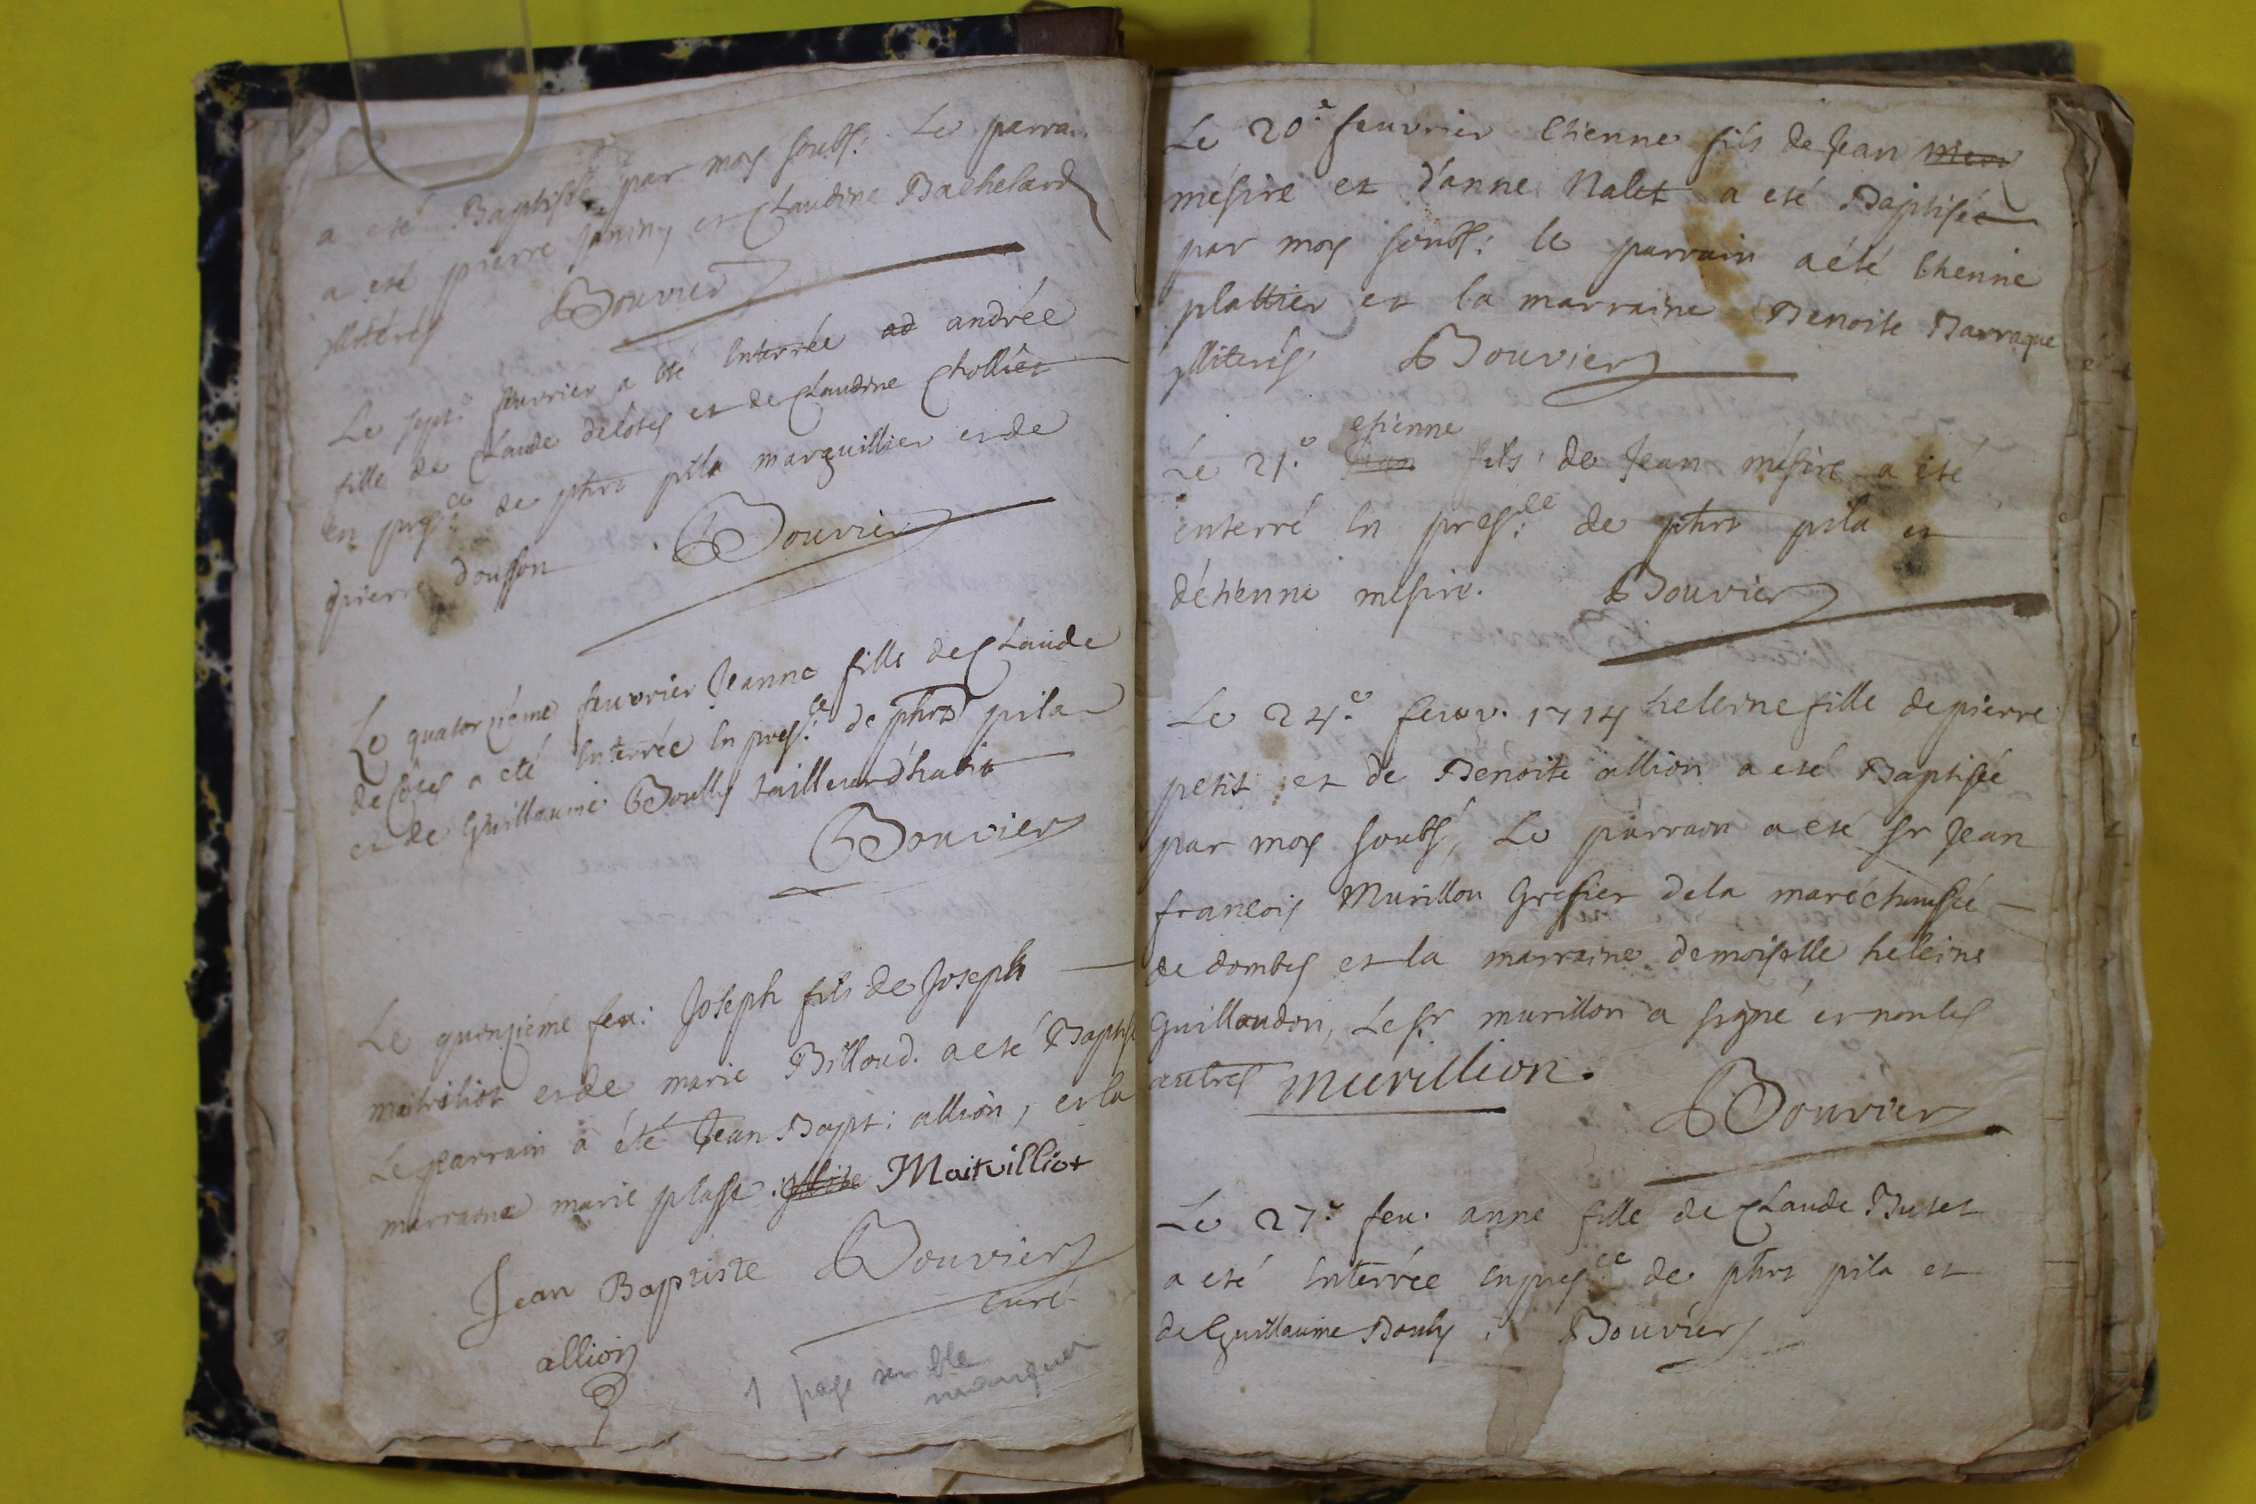 a eté Baptisée par moy soubs: Le parrain
a eté pierre Janin, et Claudine Bachelard
illiteres Bouvier
Le sept.e feuvrier a eté Enterrée ad andrée
fille de Claude delótes et de Claudine Chollet
en pres.ce de phrt pila marguillier et de
pierre dousson Bouvier
Le quatorziéme feuvrier Jeanne fille de Claude
delótes a eté Enterrée En pres.ce de phrt pila
et de Guillaume Bouly tailleur d'habit
Bouvier
Le quinziéme feu: Joseph fils de Joseph
maitviliot et de marie Billoud. a eté Baptisé
Le parrain a été Jean Bapt: allion, et la
marraine marie plasse. illite Maitvilliot
Jean Baptiste Bouvier
curé
allion
1 page semble
manquer
Le 20.e feuvrier Etienne fils de Jean
mésire et d'anne Nalet a eté Baptisée
par moy soubs: le parrain a été Etienne
plattier et la marraine Benoite Barraque
illiterés Bouvier
etienne
Le 21.e Jean fils de Jean mésire a été
enterré En pres.ce de phrt pila et
d'étienne mesire. Bouvier
Le 24.e feuv. 1714 heleine fille de pierre
petit et de Benoite allion a eté Baptisée
par moy soubs, Le parrain a eté sr Jean
francois Murillon Grefier de la maréchaussée
de dombes et la marraine demoiselle heleine
Guillaudon, Le sr murillon a signé et non les
autres murillion.
Bouvier
Le 27.e feu. anne fille de Claude Butet
a eté Enterrée En pres.ce de phrt pila et
de Guillaume Bouly. Bouvier